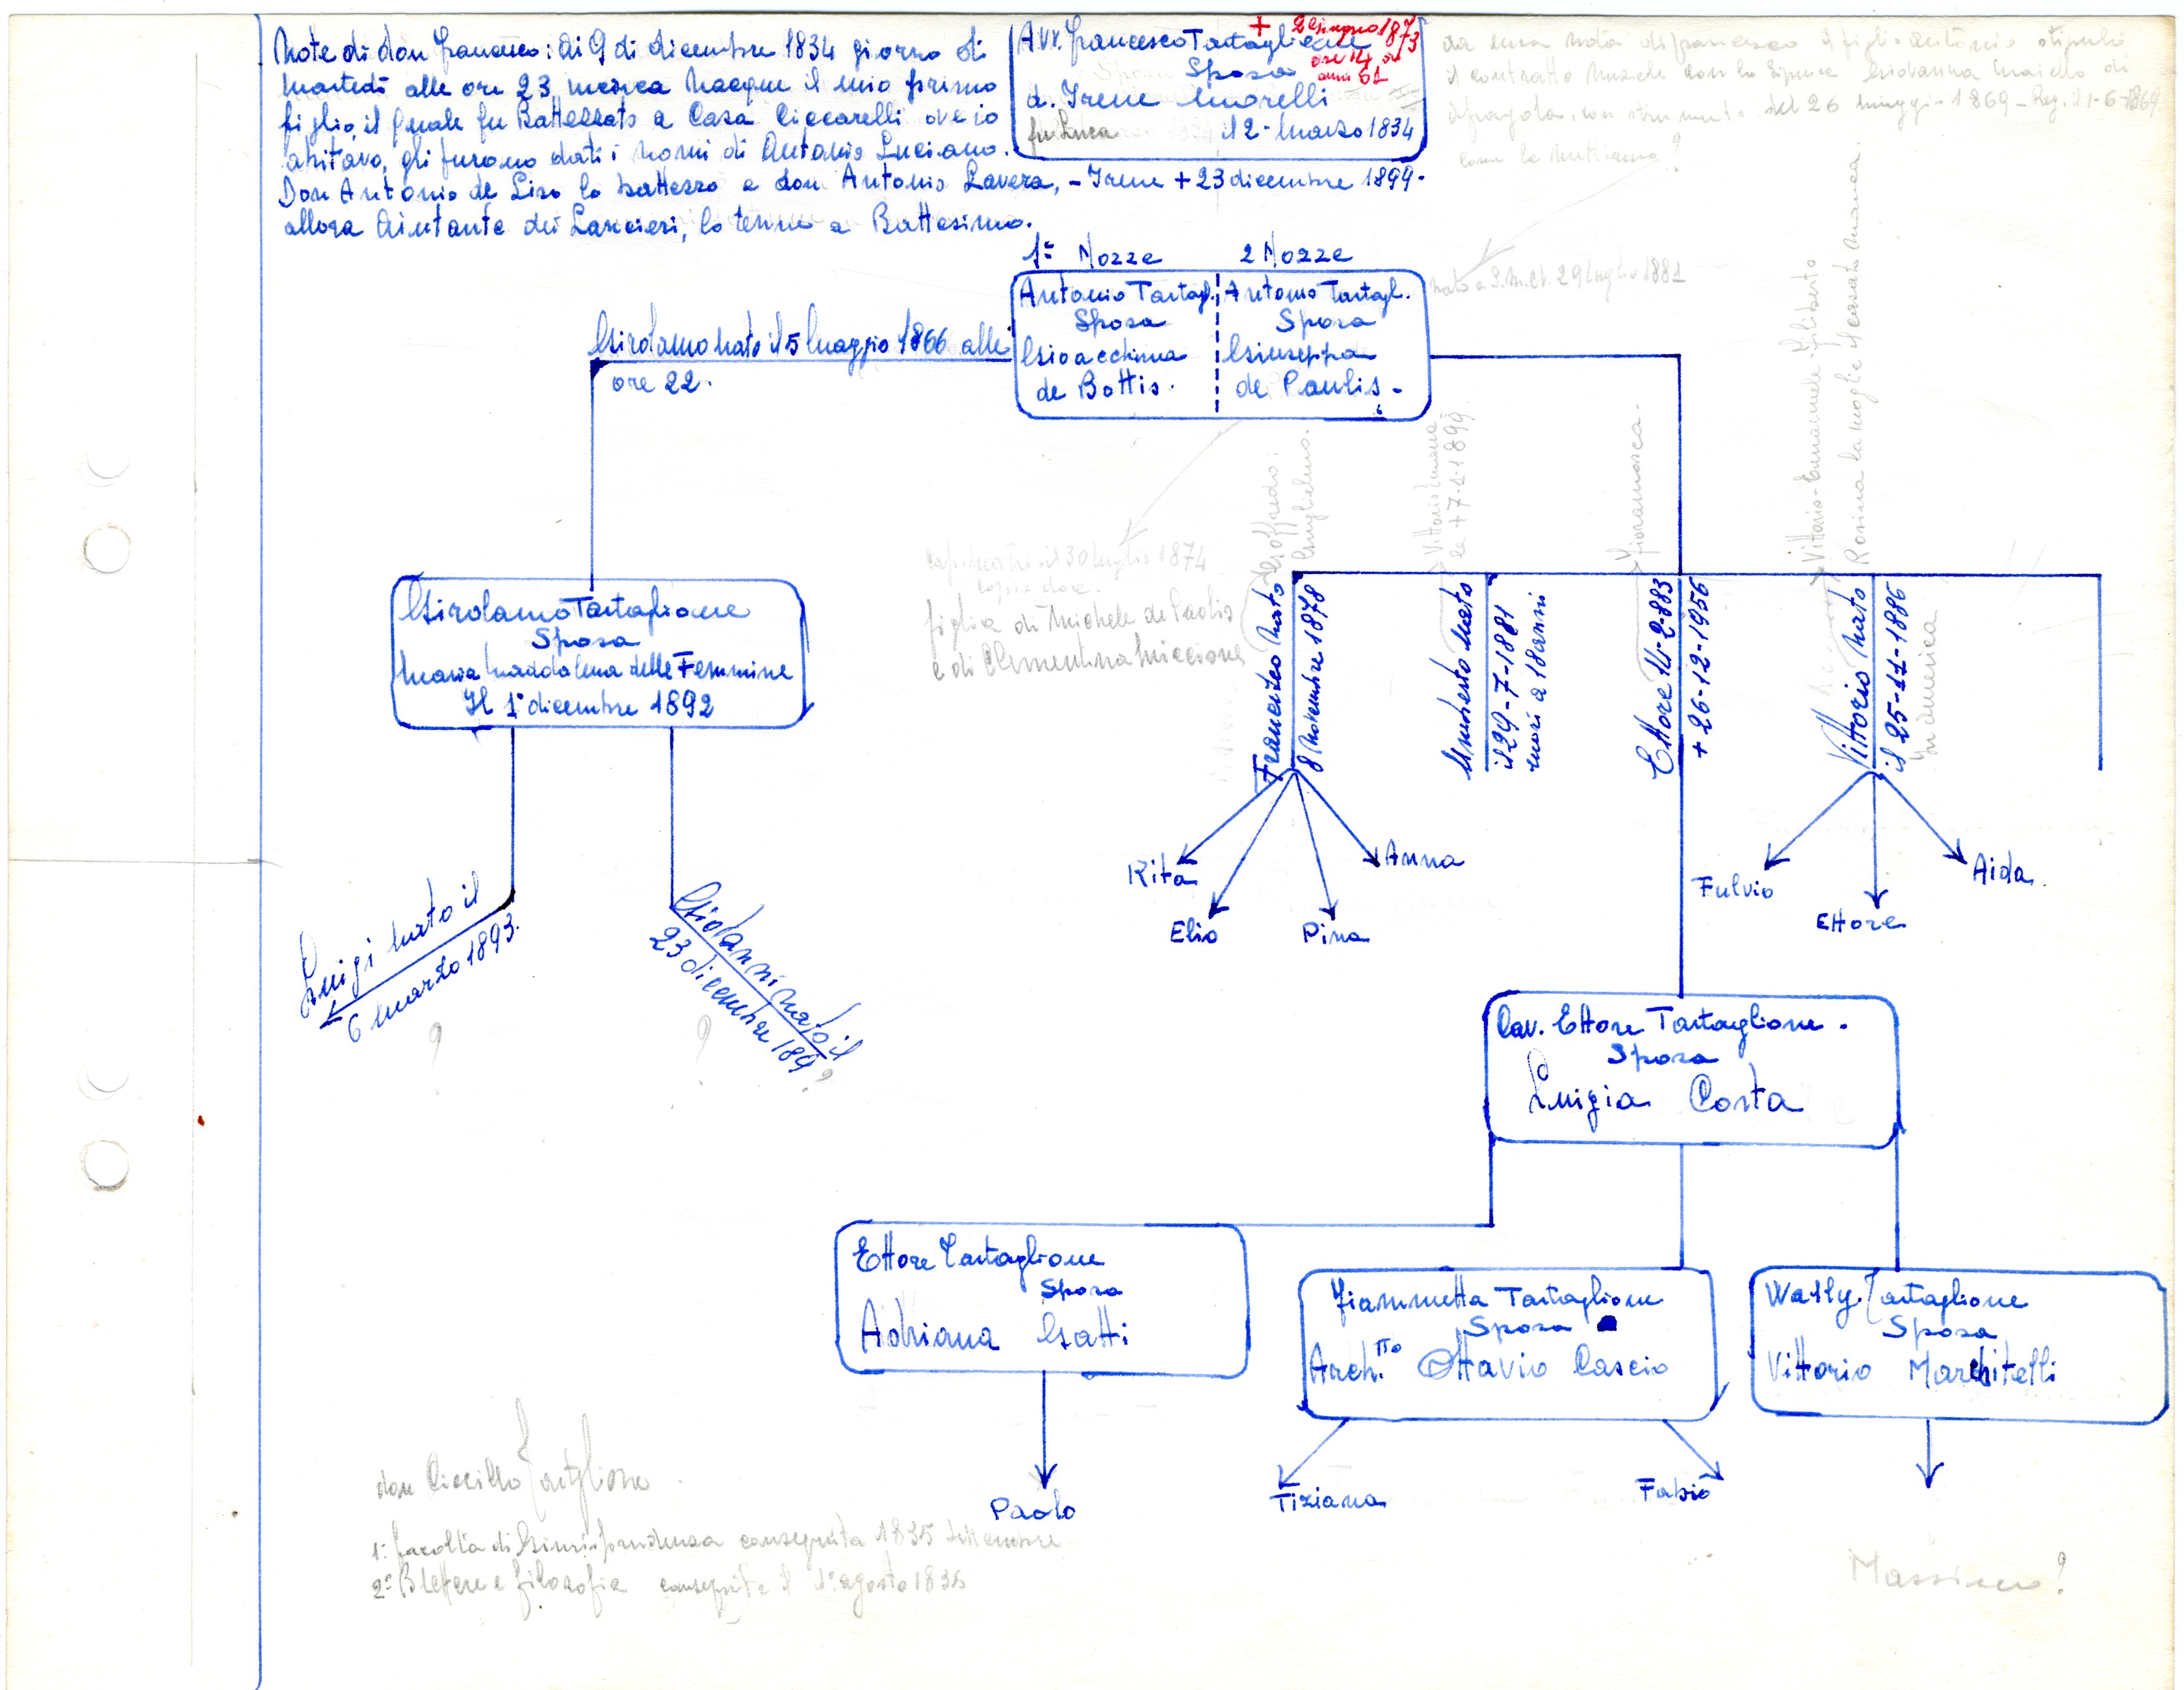 Note di don Francesco: Ai 9 di dicembre 1834 giorno di
Martedì alle ore 23 nacque il mio primo
figlio, il quale fu Battezzato a Casa Ciccarelli ove io
abitavo, gli furono dati i nomi di Antonio Luciano.
Don Antonio de Liso lo battezzò e don Antonio Lavera,
allora Aiutante dei Lancieri, lo tenne a Battesimo.
Avv. Francesco Tartaglione
Sposa
d. Irene Morelli
fu Luca il 2 - Marzo 1834
+ 2 Giugno 1873
ore 14
anni 61
- Irene + 23 dicembre 1899 -
da una nota di francesco il figlio Antonio stipulò
il contratto nuziale con la Signora Giovanna Maiello di
Afragola, con strumento del 26 Maggio 1869 - Reg. il 1-6-1869
come la mettiamo?
1ª Nozze 2 Nozze
Antonio Tartagl.
Sposa
Gioacchina
de Bottis.
Antonio Tartagl.
Sposa
Giuseppa
de Paulis -
nato a S.M.C.V. 29 Luglio 1881
Girolamo nato il 5 Maggio 1866 alle
ore 22.
Cap. matri. il 30 luglio 1874
copia doc.
figlia di Michele de Paolis
e di Clementina Miccione
Girolamo Tartaglione
Sposa
Maria Maddalena delle Femmine
Il 1° dicembre 1892
Luigi nato il
6 Marzo 1893.
?
Giovanni nato il
23 dicembre 189 ?
?
Francesco nato
8 Novembre 1878
Goffredo:
Guglielmo.
Umberto nato
il 29-7-1881
morì a 18 anni
Vittorio
+ 7-1-1899
Ettore 14-2-883
+ 26-12-1956
Fioramosca.
Vittorio nato
il 25-11-1886
Vittorio-Emanuele-Filiberto
Rosina la moglie
in America
Rita
Elio
Pina
Anna
Fulvio
Ettore
Aida.
Cav. Ettore Tartaglione.
Sposa
Luigia Costa
Ettore Tartaglione
Sposa
Adriana Gatti
Fiammetta Tartaglione
Sposa
Arch.tto Ottavio Cascio
Wally Tartaglione
Sposa
Vittorio Marchitelli
Paolo
Tiziana
Fabio
Massimo?
don Ciccillo Tartaglione
1ª facoltà di Giurisprudenza conseguita 1835 settembre
2ª B lettere e filosofia conseguita il 1° agosto 1835